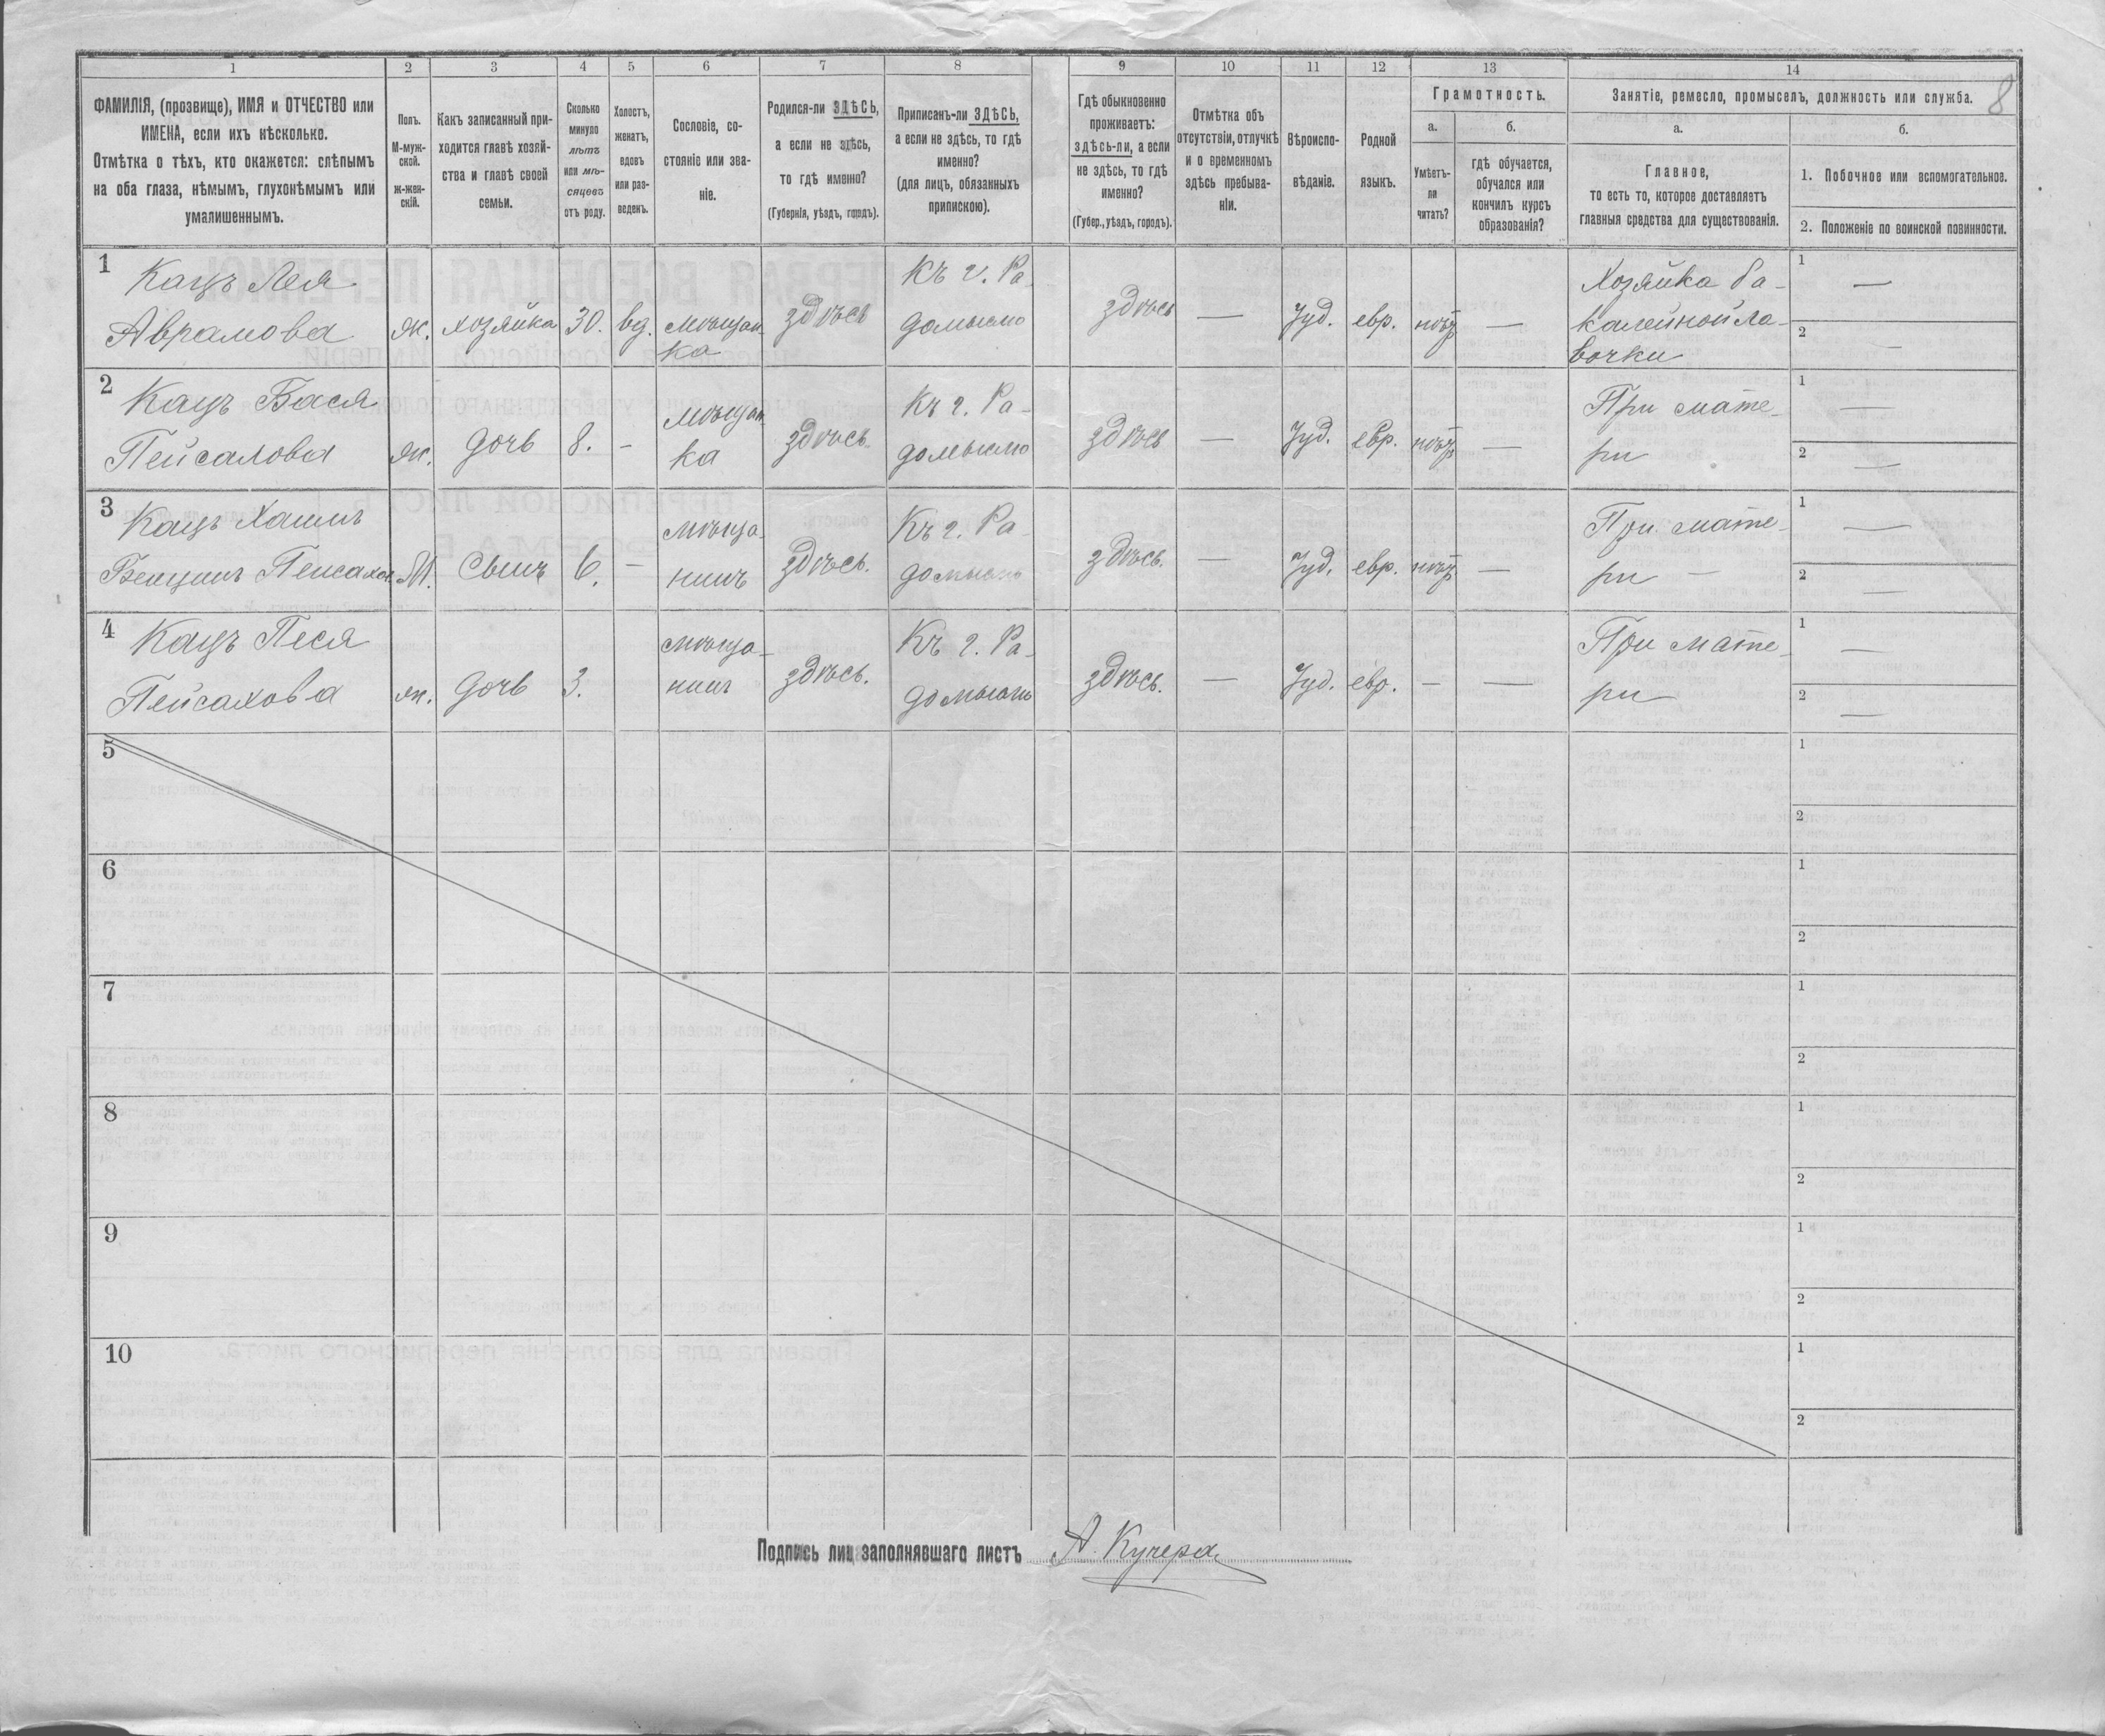 1 2 3 4 5 6 7 8 9 10 11 12 13 14
8
ФАМИЛІЯ, (прозвище), ИМЯ и ОТЧЕСТВО или
ИМЕНА, если ихъ нѣсколько.
Отмѣтка о тѣхъ, кто окажется: слѣпымъ
на оба глаза, нѣмымъ, глухонѣмымъ или
умалишеннымъ.
Полъ.
М-муж-
ской.
ж-жен-
скій.
Какъ записанный при-
ходится главѣ хозяй-
ства и главѣ своей
семьи.
Сколько
минуло
лѣтъ
или мѣ-
сяцевъ
отъ роду.
Холостъ,
женатъ,
вдовъ
или раз-
веденъ.
Сословіе, со-
стояніе или зва-
ніе.
Родился-ли ЗДѢСЬ,
а если не здѣсь,
то гдѣ именно?
(Губернія, уѣздъ, городъ).
Приписанъ-ли ЗДѢСЬ,
а если не здѣсь, то гдѣ
именно?
(для лицъ, обязанныхъ
припискою).
Гдѣ обыкновенно
проживаетъ:
здѣсь-ли, а если
не здѣсь, то гдѣ
именно?
(Губер., уѣздъ, городъ).
Отмѣтка объ
отсутствіи, отлучкѣ
и о временномъ
здѣсь пребыва-
ніи.
Вѣроиспо-
вѣданіе.
Родной
языкъ.
Грамотность.
а.
Умѣетъ-
ли
читать?
б.
гдѣ обучается,
обучался или
кончилъ курсъ
образованія?
Занятіе, ремесло, промыселъ, должность или служба.
а.
Главное,
то есть то, которое доставляетъ
главныя средства для существованія.
б.
1. Побочное или вспомогательное.
2. Положеніе по воинской повинности.
1
Кацъ Лея
Аврамова
ж.
хозяйка
30.
вд.
Мѣщан-
ка
здѣсь
Къ г. Ра-
домыслю
здѣсь
—
Іуд.
евр.
нѣтъ
—
Хозяйка ба-
калейной ла-
вочки
1 —
2 —
2
Кацъ Бася
Пейсахова
ж.
дочь
8.
-
Мѣщан-
ка
здѣсь
Къ г. Ра-
домыслю
здѣсь
—
Іуд.
евр.
нѣтъ
—
При мате-
ри
1 —
2 —
3
Кацъ Хаимъ
Пейсахов
М.
Сынъ
6.
-
мѣща-
нинъ
здѣсь.
Къ г. Ра-
домыслю
здѣсь.
—
Іуд.
евр.
нѣтъ
—
При мате-
ри —
1 —
2 —
4
Кацъ Песя
Пейсахова
ж.
дочь
3.
мѣща-
нинъ
здѣсь.
Къ г. Ра-
домыслю
здѣсь.
—
Іуд.
евр.
-
—
При мате-
ри
1 —
2 —
5
1
2
6
1
2
7
1
2
8
1
2
9
1
2
10
1
2
Подпись лица заполнявшаго листъ А. Кучера